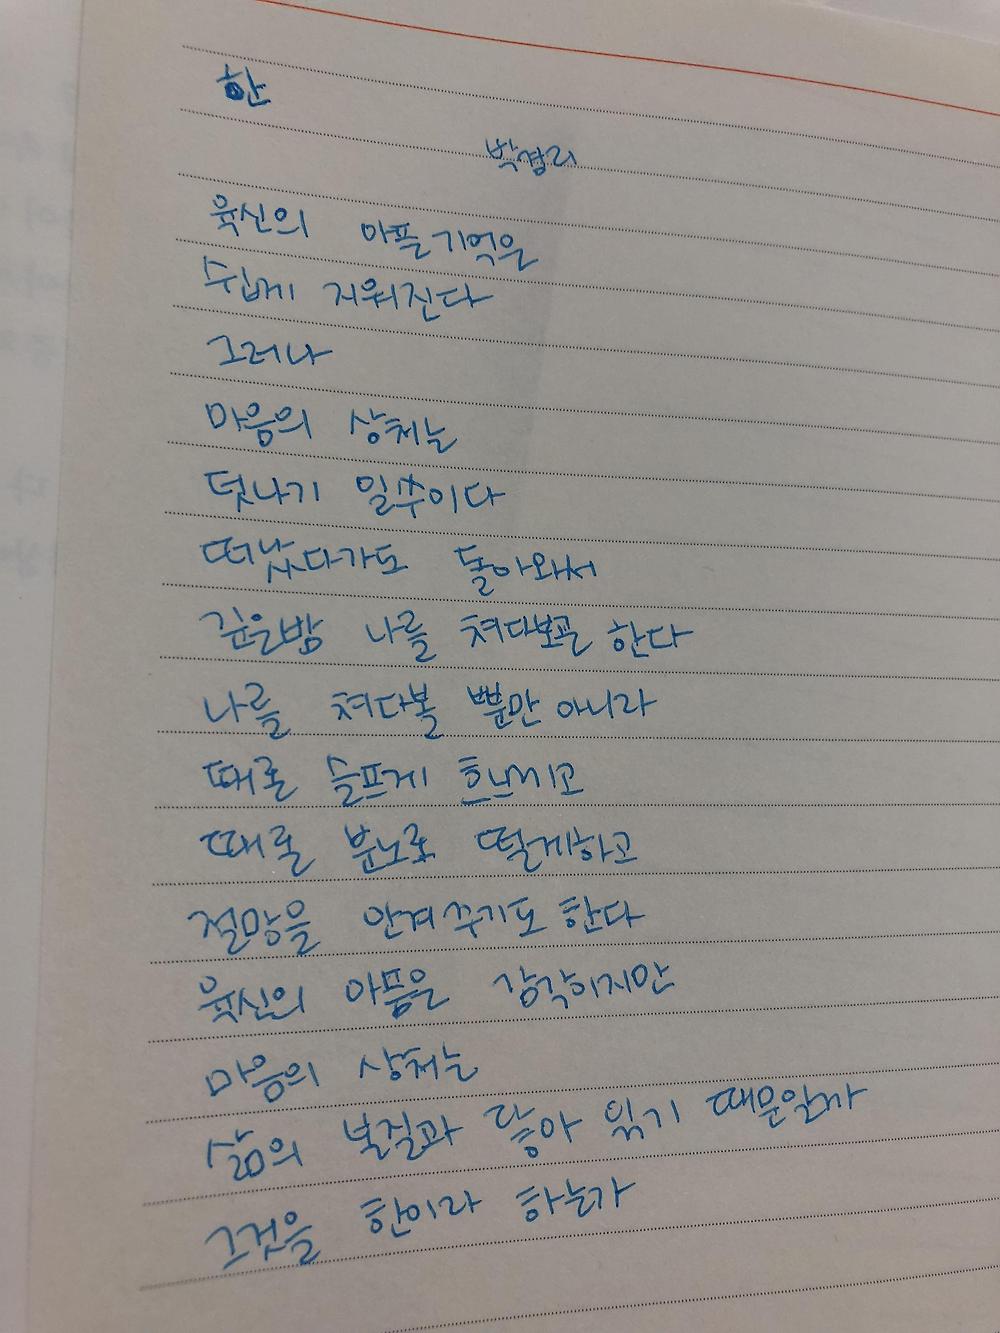 한
박경리
육신의 아픈 기억은
쉽게 지워진다
그러나
마음의 상처는
덧나기 일쑤이다
떠났다가도 돌아와서
깊은밤 나를 쳐다보곤 한다
나를 쳐다볼 뿐만 아니라
때론 슬프게 흐느끼고
때론 분노로 떨게하고
절망을 안겨 주기도 한다
육신의 아픔은 감각이지만
마음의 상처는
삶의 본질과 닿아 있기 때문일까
그것을 한이라 하는가